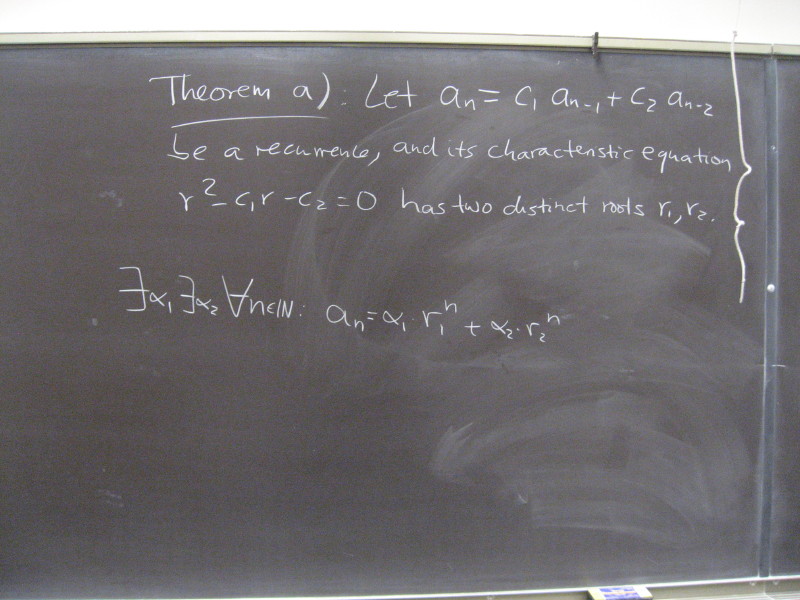 Theorem a): Let aₙ = c₁ aₙ₋₁ + c₂ aₙ₋₂
be a recurrence, and its characteristic equation
r² - c₁r - c₂ = 0 has two distinct roots r₁, r₂.
∃α₁ ∃α₂ ∀n∈ℕ: aₙ = α₁·r₁ⁿ + α₂·r₂ⁿ